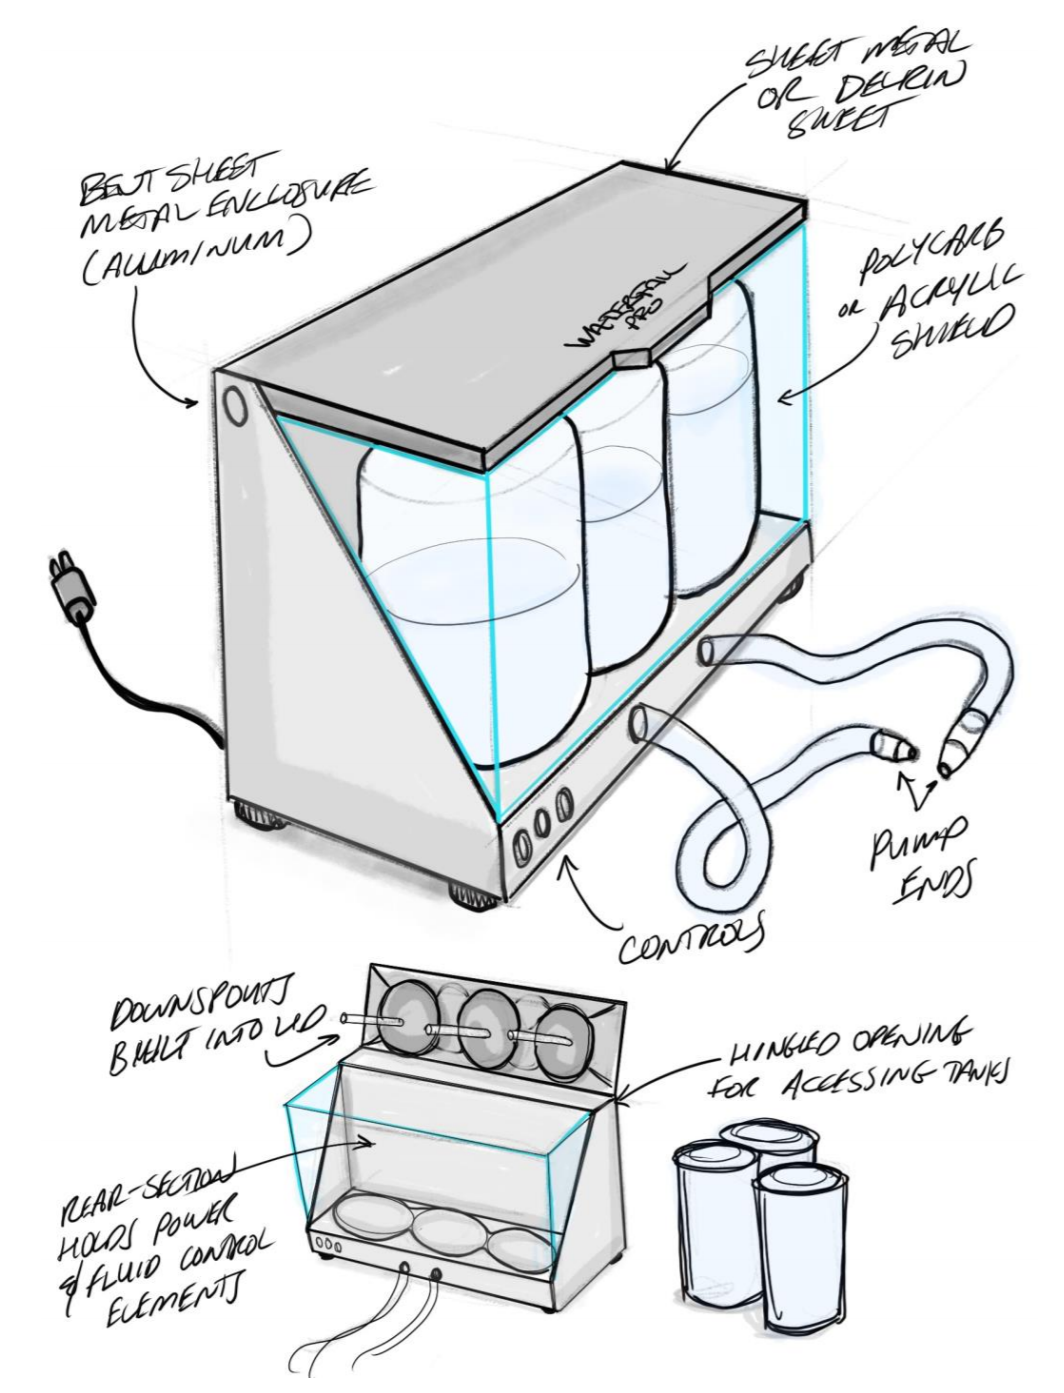 SHEET METAL
OR DELRIN
SHEET
BENT SHEET
METAL ENCLOSURE
(ALUMINUM)
POLYCARB
OR ACRYLIC
SHIELD
PRO
PUMP
ENDS
CONTROLS
DOWNSPOUTS
BUILT INTO LID
HINGED OPENING
FOR ACCESSING TANKS
REAR-SECTION
HOLDS POWER
& FLUID CONTROL
ELEMENTS